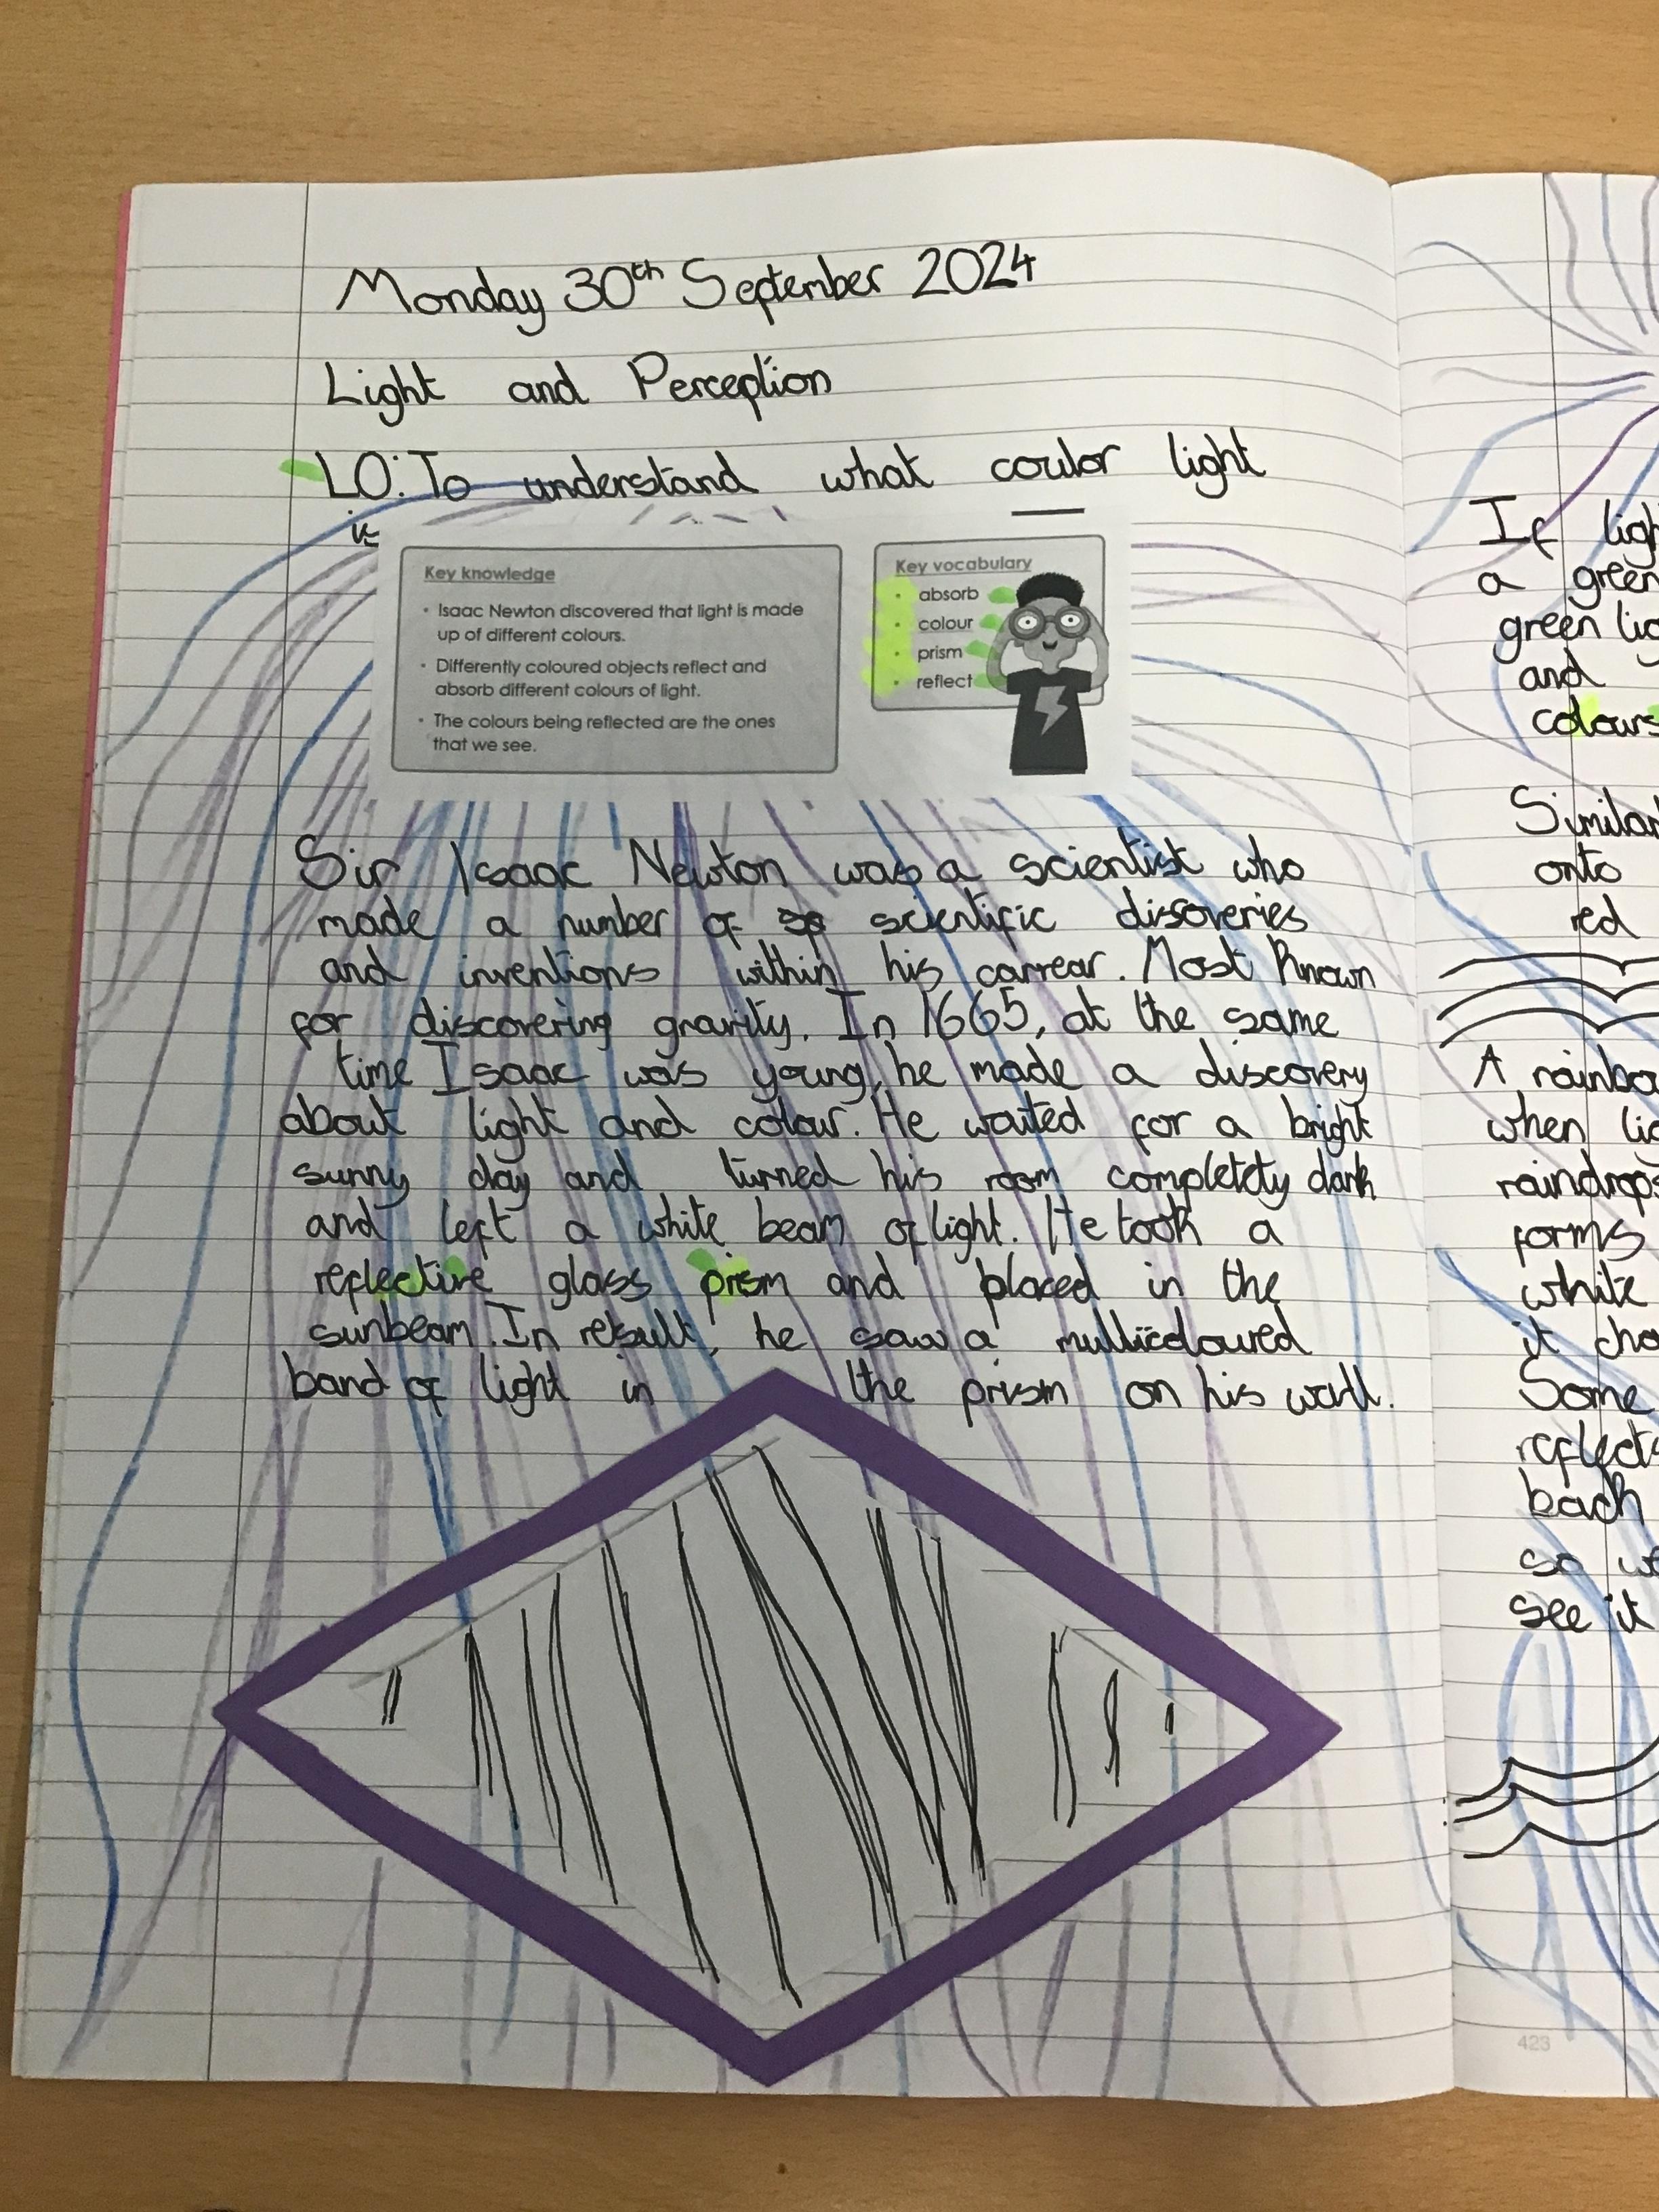 Monday 30th September 2024
Light and Perception
LO: To understand what coulor light
is
Key knowledge
• Isaac Newton discovered that light is made
up of different colours.
• Differently coloured objects reflect and
absorb different colours of light.
• The colours being reflected are the ones
that we see.
Key vocabulary
• absorb
• colour
• prism
• reflect
Sir Isaac Newton was a scientist who
made a number of scientific discoveries
and inventions within his carrear. Most known
for discovering gravity. In 1665, at the same
time Isaac was young, he made a discovery
about light and colour. He waited for a bright
sunny day and turned his room completely dark
and left a white beam of light. He took a
reflective glass prism and placed in the
sunbeam. In result, he saw a multicoloured
band of light in the prism on his wall.
If
a green
green
and
colours
Similar
onto
red
A
when
raindrops
forms
white
it
Some
reflects
back
so
see it
423